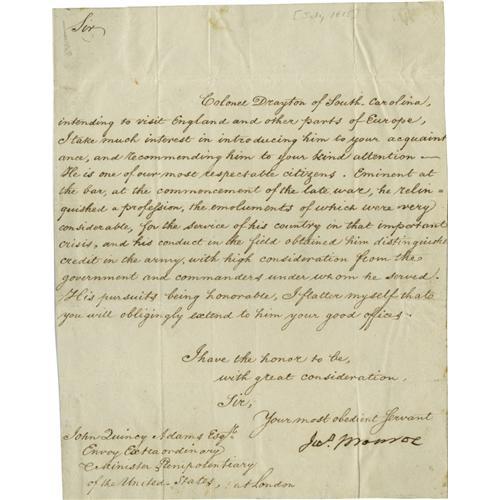 [July 1815]
Sir
Colonel Drayton of South Carolina,
intending to visit England and other parts of Europe,
I take much interest in introducing him to your acquaint
ance, and recommending him to your kind attention —
He is one of our most respectable citizens. Eminent at
the bar, at the commencement of the late war, he relin-
quished a profession, the emoluments of which were very
considerable, for the service of his country in that important
crisis, and his conduct in the field obtained him distinguishe
credit in the army, with high consideration from the
government and commanders under whom he served.
His pursuits being honorable, I flatter myself that
you will obligingly extend to him your good offices.
I have the honor to be,
with great consideration,
Sir,
Your most obedient Servant
Jas. Monroe
John Quincy Adams Esqr.
Envoy Extraordinary
& Minister Plenipotentiary
of the United States, at London